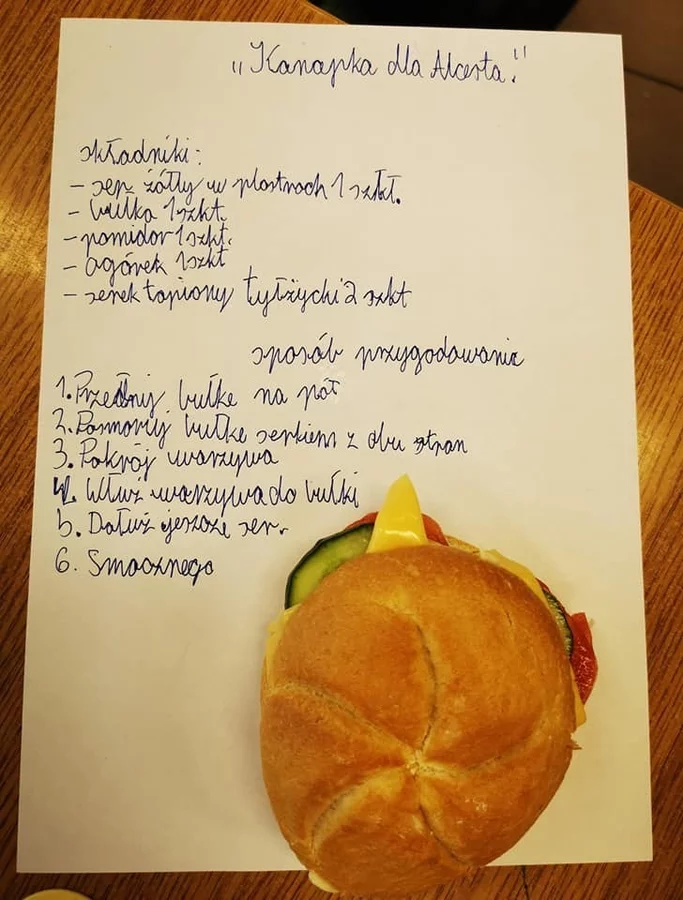 „Kanapka dla Alcesta!"
składniki:
- ser żółty w plastrach 1 szkt.
- bułka 1 szkt.
- pomidor 1 szkt.
- ogórek 1 szkt
- serek topiony tyłżycki 2 szkt
sposób przygodowanie
1. Przetnij bułke na pół
2. Posmaruj bułke serkiem z dwu stron
3. Pokrój warzywa
4. Włuż warzywa do bułki
5. Dołuż jeszcze ser.
6. Smacznego